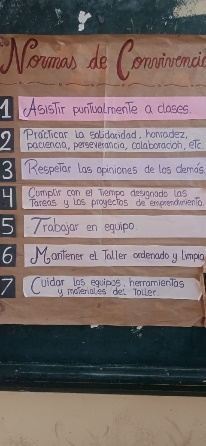 Normas de Convivencia
1 Asistir puntualmente a clases.
2 Practicar la solidaridad, honradez,
paciencia, perseverancia, colaboración, etc.
3 Respetar las opiniones de los demás.
4 Cumplir con el Tiempo designado las
Tareas y los proyectos de emprendimiento.
5 Trabajar en equipo.
6 Mantener el Taller ordenado y limpio
7 Cuidar los equipos, herramientas
y materiales del Taller.